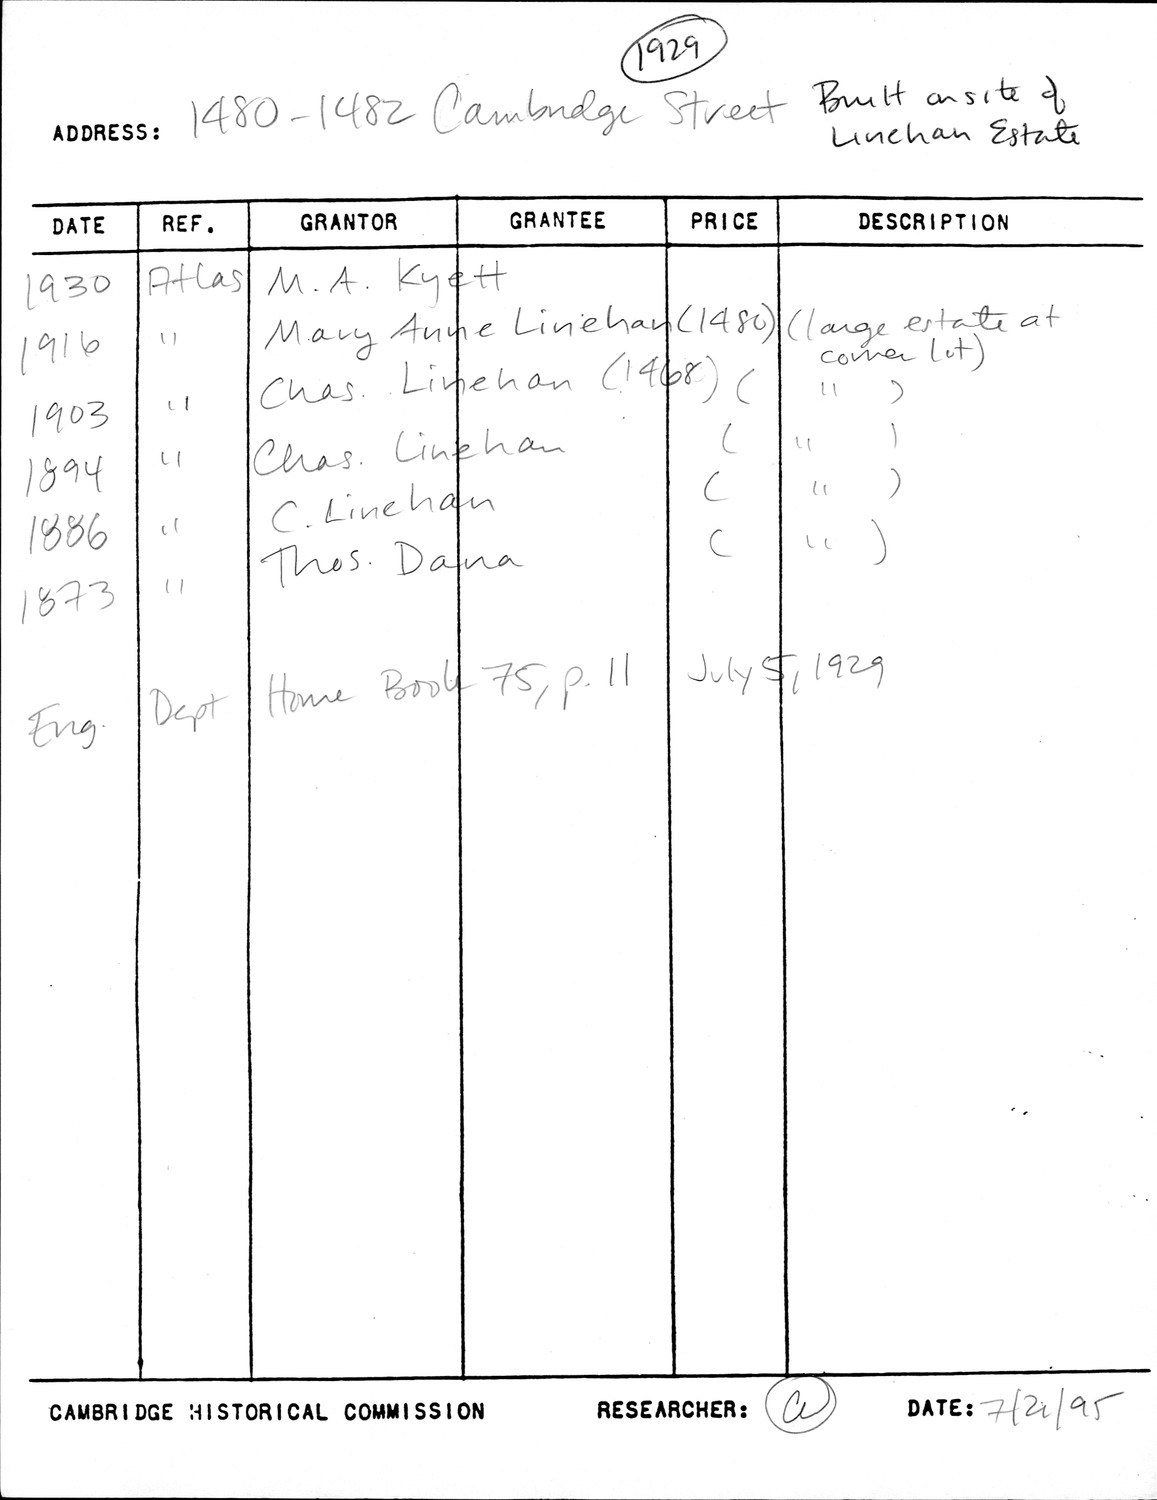 1929
ADDRESS: 1480-1482 Cambridge Street Built on site of
Linehan Estate
DATE REF. GRANTOR GRANTEE PRICE DESCRIPTION
1930 Atlas M. A. Kyett
1916 " Mary Anne Linehan (1480) (large estate at
corner lot)
1903 " Chas. Linehan (1468) ( " )
1894 " Chas. Linehan ( " )
1886 " C. Linehan ( " )
1873 " Thos. Dana ( " )
Eng. Dept Home Book 75, p. 11 July 5, 1929
CAMBRIDGE HISTORICAL COMMISSION RESEARCHER: DATE: 7/21/95